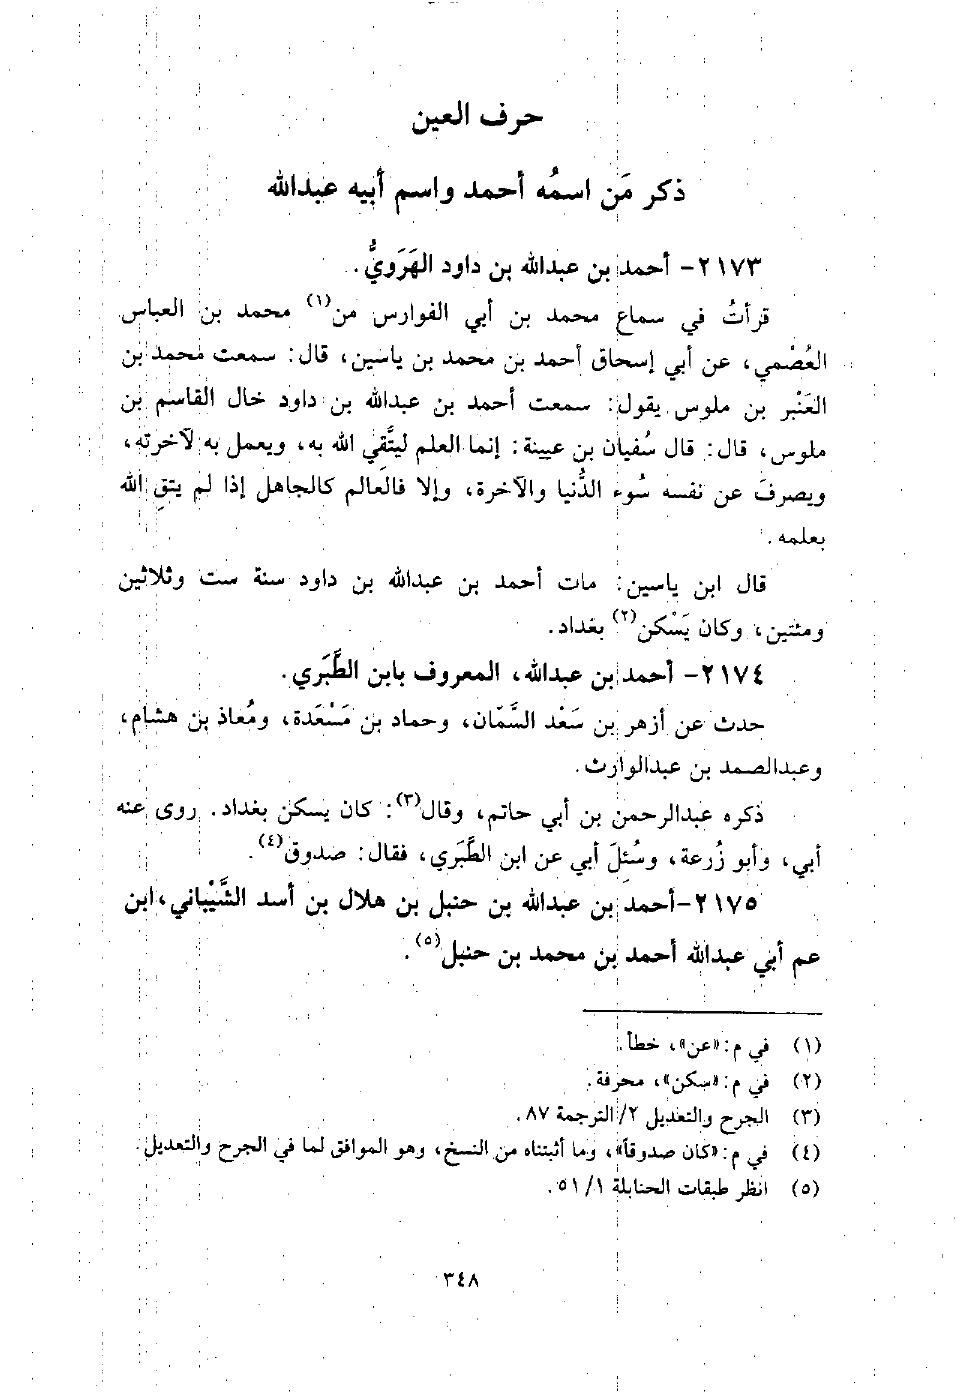 حرف العين
ذكر مَن اسمُه أحمد واسم أبيه عبدالله
٢١٧٣- أحمد بن عبدالله بن داود الهَرَويُّ.
قرأتُ في سماع محمد بن أبي الفوارس من(١) محمد بن العباس
العُصْمي، عن أبي إسحاق أحمد بن محمد بن ياسين، قال: سمعت محمد بن
العَنْبر بن ملوس يقول: سمعت أحمد بن عبدالله بن داود خال القاسم بن
ملوس، قال: قال سُفيان بن عيينة: إنما العلم ليتَّقِي الله به، ويعمل به لآخرته،
ويصرفَ عن نفسه سُوء الدُّنيا والآخرة، وإلا فالعالم كالجاهل إذا لم يتقِ الله
بعلمه.
قال ابن ياسين: مات أحمد بن عبدالله بن داود سنة ست وثلاثين
ومئتين، وكان يَسْكن(٢) بغداد.
٢١٧٤- أحمد بن عبدالله، المعروف بابن الطَّبَري.
حدث عن أزهر بن سَعْد السَّمّان، وحماد بن مَسْعَدة، ومُعاذ بن هشام،
وعبدالصمد بن عبدالوارث.
ذكره عبدالرحمن بن أبي حاتم، وقال(٣): كان يسكن بغداد. روى عنه
أبي، وأبو زُرعة، وسُئِلَ أبي عن ابن الطَّبَري، فقال: صدوق(٤).
٢١٧٥-أحمد بن عبدالله بن حنبل بن هلال بن أسد الشَّيْباني، ابن
عم أبي عبدالله أحمد بن محمد بن حنبل(٥).
(١) في م: «عن»، خطأ.
(٢) في م: «سكن»، محرفة.
(٣) الجرح والتعديل ٢/ الترجمة ٨٧.
(٤) في م: «كان صدوقاً»، وما أثبتناه من النسخ، وهو الموافق لما في الجرح والتعديل.
(٥) انظر طبقات الحنابلة ١/ ٥١.
٣٤٨